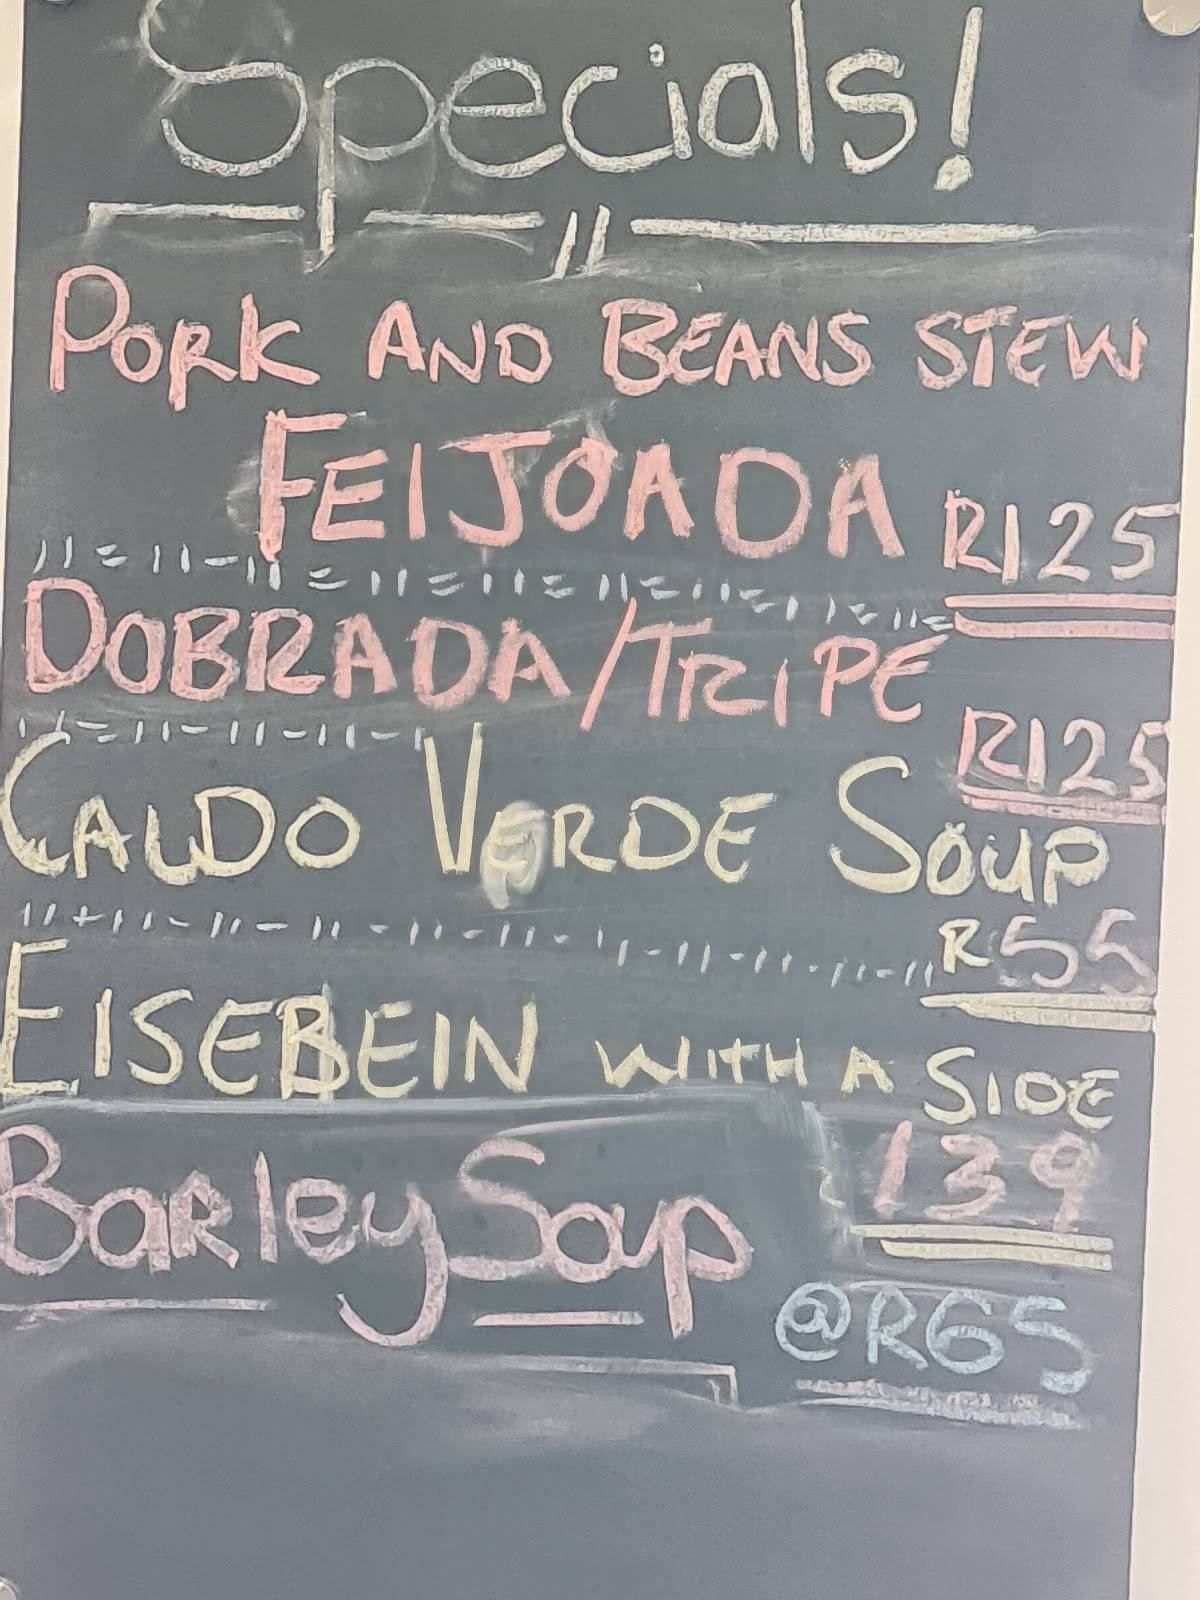 Specials!
PORK AND BEANS STEW
FEIJOADA R125
DOBRADA/TRIPE
R125
CALDO VERDE SOUP
R55
EISEBEIN WITH A SIDE
139
Barley Soup
@R65